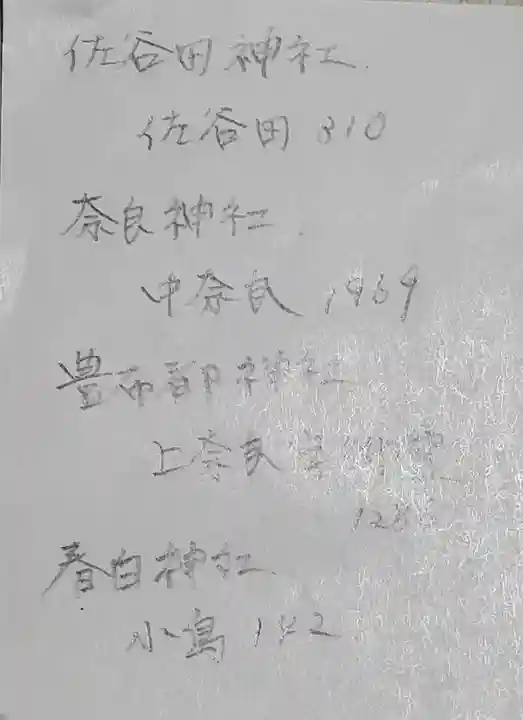 佐谷田神社
佐谷田 810
奈良神社
中奈良 1969
豊布都神社
上奈良
128
春日神社
小島 142